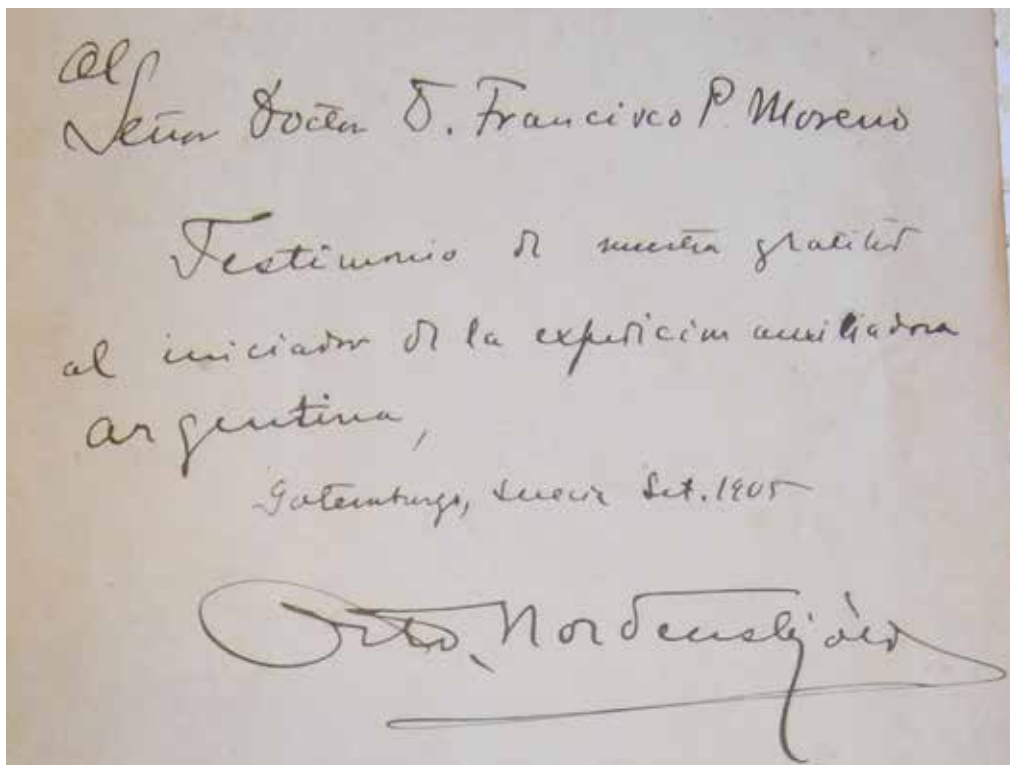 Al
Señor Doctor D. Francisco P. Moreno
Testimonio de nuestra gratitud
al iniciador de la expedición auxiliadora
argentina,
Gotemburgo, Suecia Set. 1905
Otto Nordenskjöld